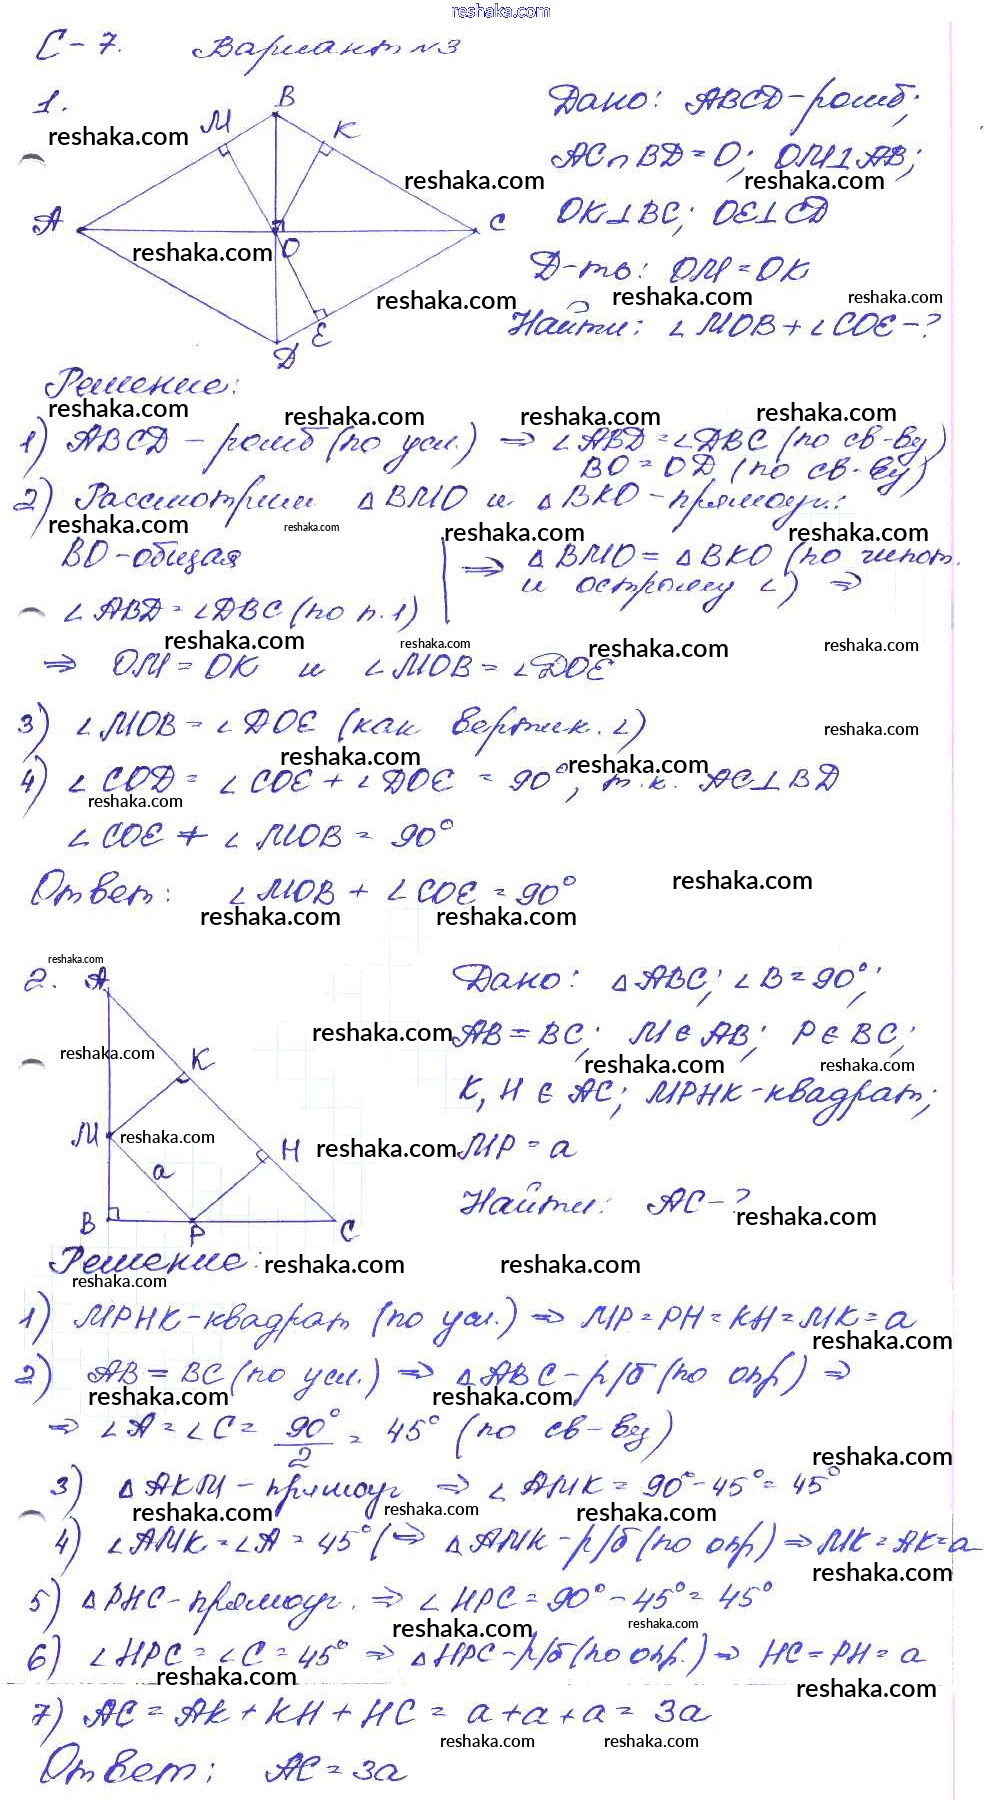 reshaka.com
С-7. Вариант №3
1.
Дано: ABCD-ромб;
AC∩BD=O; OM⊥AB;
OK⊥BC; OE⊥CD
Д-ть: OM=OK
Найти: ∠MOB+∠COE-?
B
M K
A C
O
E
D
Решение:
1) ABCD - ромб (по усл.) ⇒ ∠ABD=∠DBC (по св-ву)
BO=OD (по св-ву)
2) Рассмотрим △BMO и △BKO-прямоуг.:
BO-общая
∠ABD=∠DBC (по п.1)
⇒ △BMO=△BKO (по гипот.
и острому ∠) ⇒
⇒ OM=OK и ∠MOB=∠DOE
3) ∠MOB=∠DOE (как вертик. ∠)
4) ∠COD=∠COE+∠DOE=90°, т.к. AC⊥BD
∠COE+∠MOB=90°
Ответ: ∠MOB+∠COE=90°
2.
Дано: △ABC; ∠B=90°;
AB=BC; M∈AB; P∈BC;
K,H∈AC; MPHK-квадрат;
MP=a
Найти: AC-?
A
K
M H
a
B P C
Решение:
1) MPHK-квадрат (по усл.) ⇒ MP=PH=KH=MK=a
2) AB=BC (по усл.) ⇒ △ABC-р/б (по опр) ⇒
⇒ ∠A=∠C=90°/2=45° (по св-ву)
3) △AKM-прямоуг ⇒ ∠AMK=90°-45°=45°
4) ∠AMK=∠A=45° (⇒ △AMK-р/б (по опр) ⇒ MK=AK=a
5) △PHC-прямоуг. ⇒ ∠HPC=90°-45°=45°
6) ∠HPC=∠C=45° ⇒ △HPC-р/б (по опр.) ⇒ HC=PH=a
7) AC=AK+KH+HC=a+a+a=3a
Ответ: AC=3a